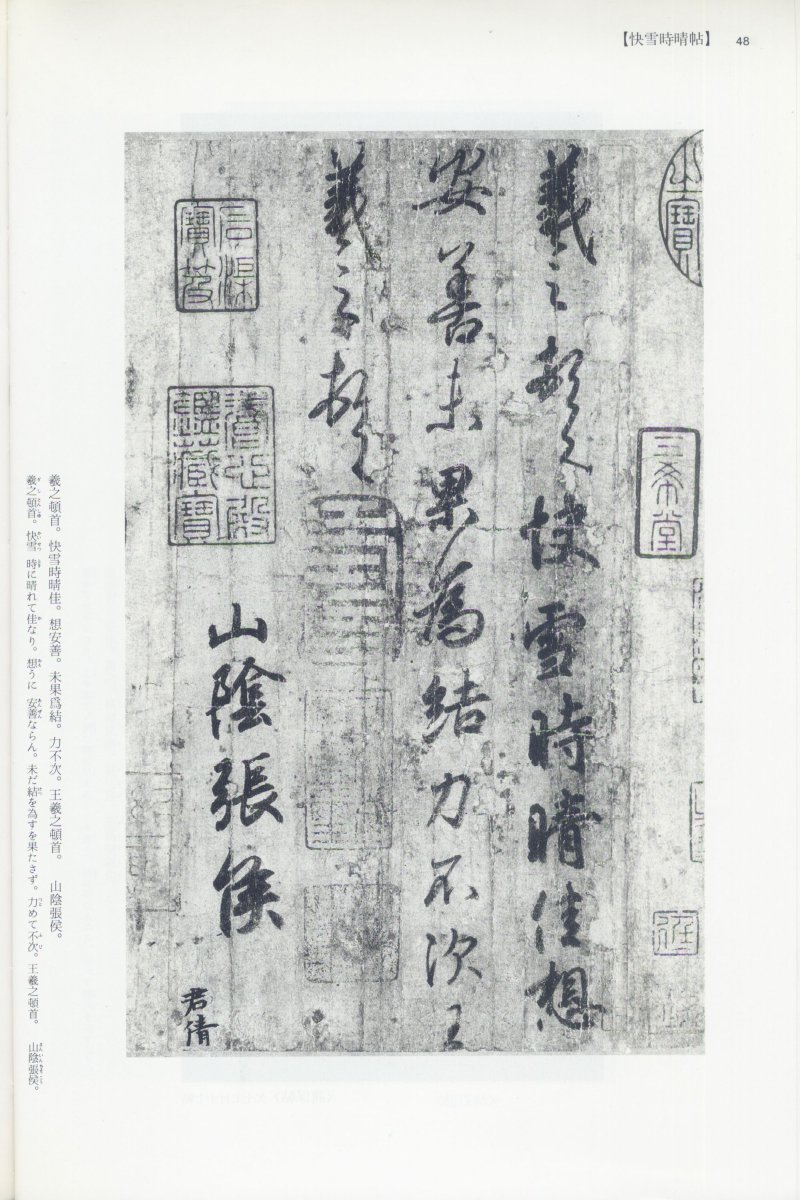 【快雪時晴帖】 48
羲之頓首快雪時晴佳想
安善未果為結力不次王
羲之頓首
山陰張侯
君倩
三希堂
羲之頓首。快雪時晴佳。想安善。未果爲結。力不次。王羲之頓首。 山陰張侯。
羲之頓首。快雪 時に晴れて佳なり。想うに 安善ならん。未だ結を為すを果たさず。力めて不次。王羲之頓首。 山陰張侯。